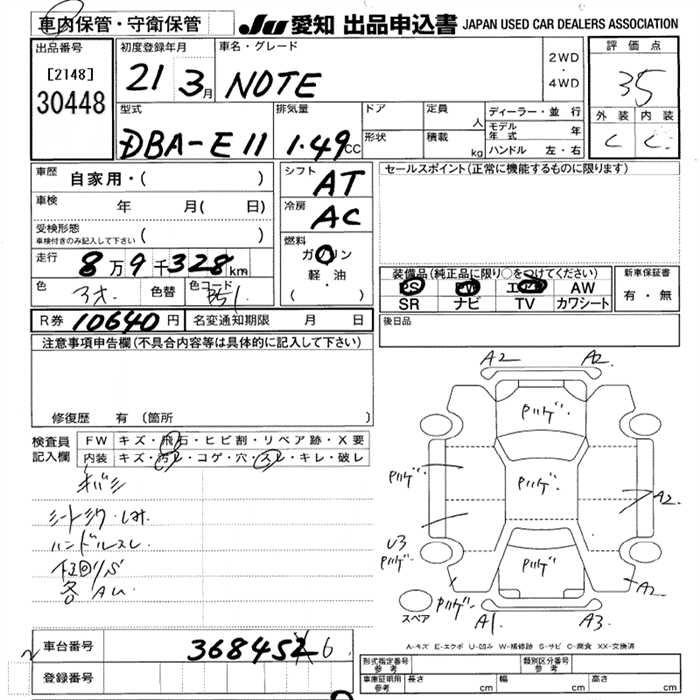 車内保管・守衛保管 JU 愛知 出品申込書 JAPAN USED CAR DEALERS ASSOCIATION
出品番号 初度登録年月 車名・グレード 2WD・4WD 評価点
[2148] 21 3月 NOTE 35
30448 外装 内装
型式 排気量 ドア 定員 人 ディーラー・並行
DBA-E11 1.49CC 形状 積載 kg モデル年式 年 C C
ハンドル 左・右
車歴 自家用・( ) シフト AT セールスポイント(正常に機能するものに限ります)
車検 年 月( 日) 冷房 AC
受検形態
車検付きのみ記入して下さい ( ) 燃料 ガソリン
走行 8万9千328km 軽・油 装備品(純正品に限り○をつけてください) 新車保証書
色 色替 色コード ( ) PS PW エアB AW 有・無
SR ナビ TV カワシート
R券 10640円 名変通知期限 月 日 後日品
注意事項申告欄(不具合内容等は具体的に記入して下さい)
修復歴 有(箇所 )
A2 A2
検査員記入欄 FW キズ・飛石・ヒビ割・リペア跡・X要
内装 キズ・汚レ・コゲ・穴・スレ・キレ・破レ
キバミ
シートシワ・しみ
ハンドルスレ
各AU
Pハゲ Pハゲ Pハゲ A2
U3 Pハゲ Pハゲ A2
Pハゲ A1 A3
スペア
A-キズ E-エクボ U-凹み W-補修跡 S-サビ C-腐食 XX-交換済
2 車台番号 368452 6
登録番号
形式指定番号 参考 類別区分番号 参考
車庫証明用 参考 長さ cm 幅 cm 高さ cm